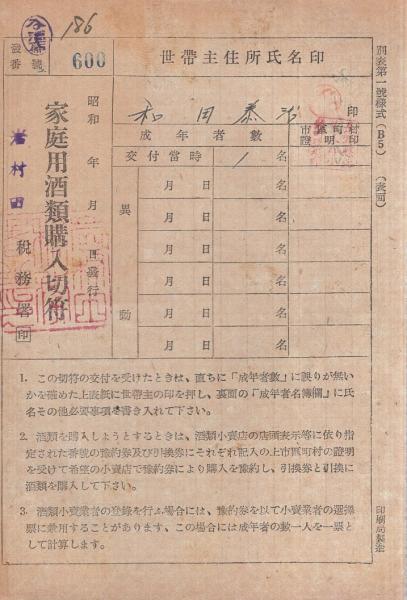 186
證番
號
600
世帶主住所氏名印
別表第一號樣式（B5）（表面）
和田泰治
印
成年者數
市區町村
證明印
交付當時
1名
異動
月 日 名
月 日 名
月 日 名
月 日 名
月 日 名
月 日 名
昭和 年 月 日發行
家庭用酒類購入切符
岩村田
稅務署 印
1. この切符の交付を受けたときは、直ちに「成年者數」に誤りが無い
かを確めた上表紙に世帶主の印を押し、裏面の「成年者名簿欄」に氏
名その他必要事項を書き入れて下さい。
2. 酒類を購入しようとするときは、酒類小賣店の店頭表示等に依り指
定された番號の豫約券及び引換券にそれぞれ記入の上市區町村の證明
を受けて希望の小賣店で豫約券により購入を豫約し、引換券と引換に
酒類を購入して下さい。
3. 酒類小賣業者の登錄を行ふ場合には、豫約券を以て小賣業者の選擇
票に兼用することがあります、この場合には成年者の數一人を一票と
して計算します。
印刷局製造